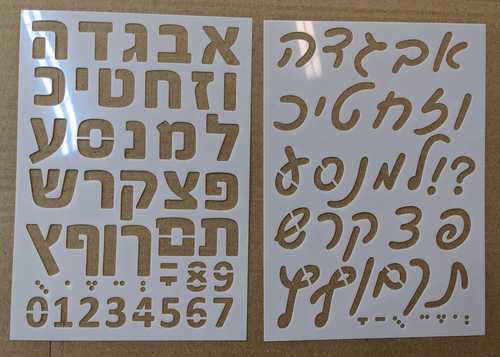 אבגדה
וזחטיכ
למנסע
פצקרש
תםךןףץ
89
01234567
אבגדה
וזחטיכ
?!למנסע
פצקרש
תךםןףץ